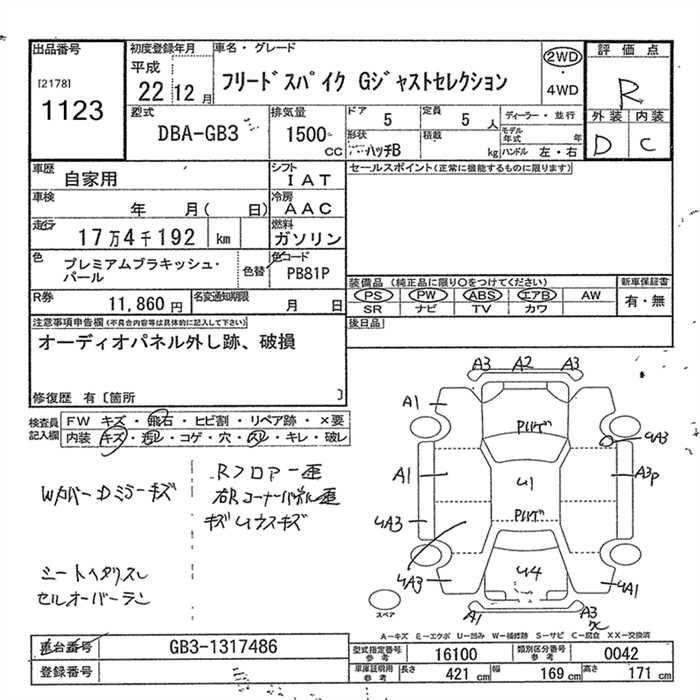 出品番号
[2178]
1123
初度登録年月
平成
22 12 月
車名・グレード
フリードスパイク Gジャストセレクション
2WD
・
4WD
評価点
R
外装 内装
D C
型式
DBA-GB3
排気量
1500 CC
ドア
5
定員
5 人
形状
ハッチB
積載
kg
ディーラー・並行
モデル年式
年
ハンドル 左・右
車歴
自家用
シフト
IAT
車検
年 月( 日)
冷房
AAC
走行
17万4千192 km
燃料
ガソリン
色
プレミアムブラキッシュ・
パール
色替
色コード
PB81P
R券
11,860 円
名変通知期限
月 日
セールスポイント(正常に機能するものに限ります)
装備品 (純正品に限り○をつけてください)
PS PW ABS エアB AW
SR ナビ TV カワ
新車保証書
有・無
後日品
注意事項申告欄(不具合内容等は具体的に記入して下さい)
オーディオパネル外し跡、破損
修復歴 有〔箇所 〕
検査員
記入欄
FW キズ・飛石・ヒビ割・リペア跡・×要
内装 キズ・汚レ・コゲ・穴・スレ・キレ・破レ
Wカバー Dミラーキズ
Rフロアー歪
右Rコーナーパネル歪
シートヘタリスレ
セルオーバーラン
A3 A2 A3
A1
PUゲ
4A3
A1
U1
A3P
4A3
PUゲ
4A3
U4
4A1
A1
A3
スペア
A-キズ E-エクボ U-凹み W-補修跡 S-サビ C-腐食 XX-交換済
車台番号
GB3-1317486
登録番号
型式指定番号
参考
16100
類別区分番号
参考
0042
車庫証明用
参考
長さ 421 cm
幅 169 cm
高さ 171 cm